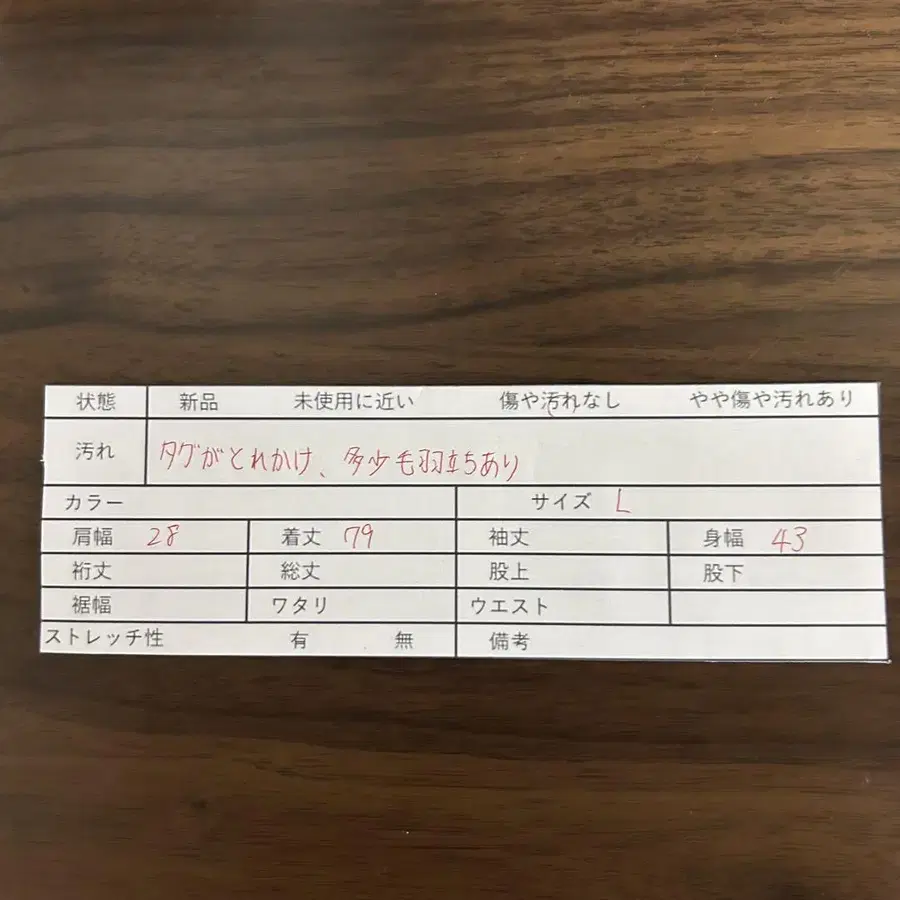 状態 新品 未使用に近い 傷や汚れなし やや傷や汚れあり
汚れ タグがとれかけ、多少毛羽立ちあり
カラー サイズ L
肩幅 28 着丈 79 袖丈 身幅 43
裄丈 総丈 股上 股下
裾幅 ワタリ ウエスト
ストレッチ性 有 無 備考